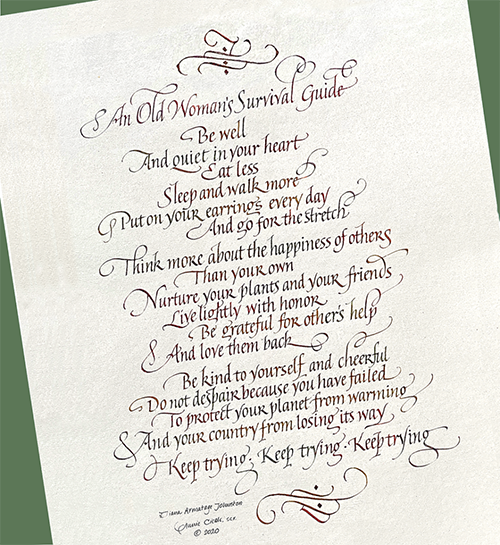 An Old Woman's Survival Guide
Be well
And quiet in your heart
Eat less
Sleep and walk more
Put on your earrings every day
And go for the stretch
Think more about the happiness of others
Than your own
Nurture your plants and your friends
Live lightly with honor
Be grateful for others help
And love them back
Be kind to yourself and cheerful
Do not despair because you have failed
To protect your planet from warming
And your country from losing its way
Keep trying · Keep trying · Keep trying
Diana Armitage Johnston
Annie Cicale,
© 2020